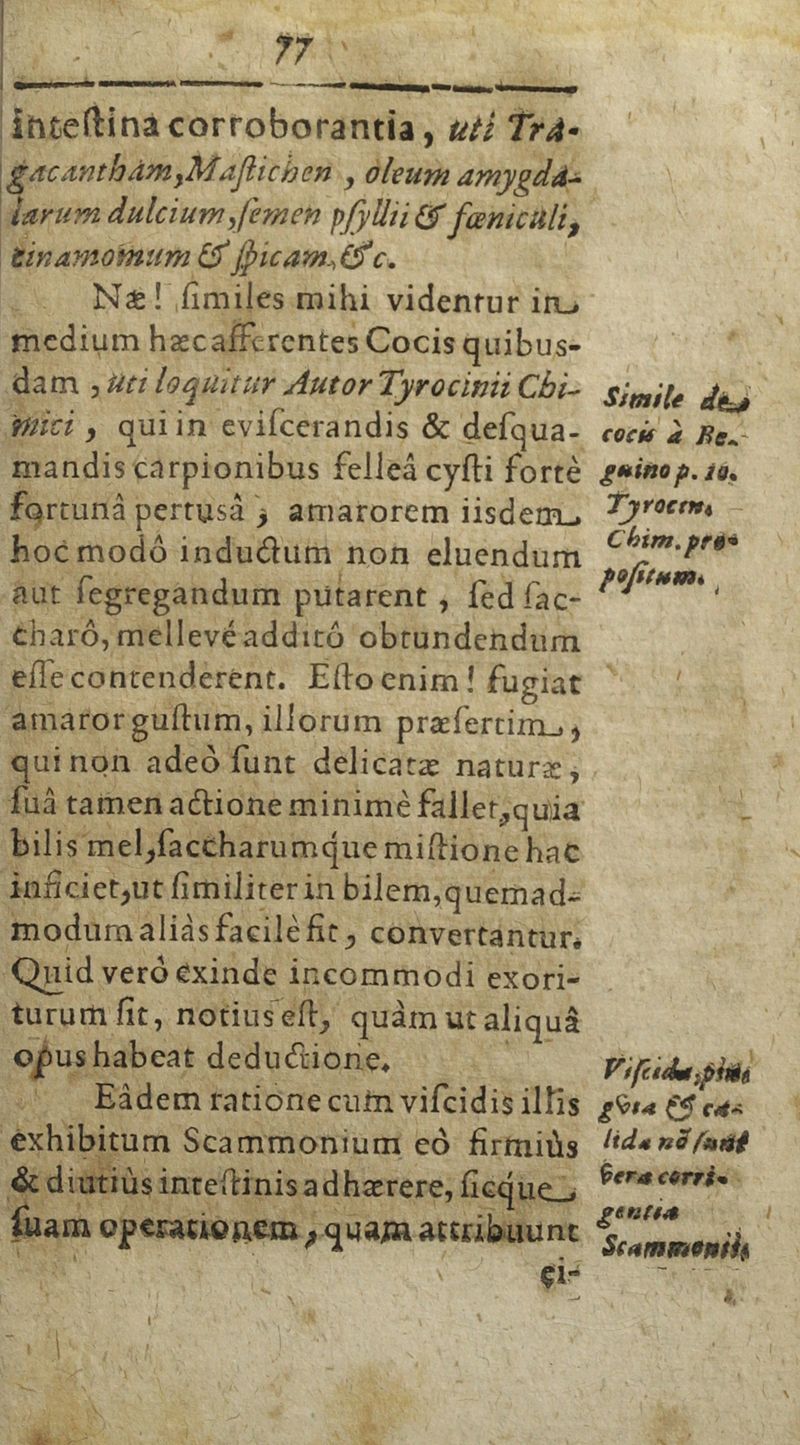 77
inteſtina corroborantia, uti Tra-
gacantham, Maſtichen, oleum amygda-
larum dulcium, ſemen pſyllii & fœniculi,
cinamomum & ſpicam, &c.
Næ! ſimiles mihi videntur in
medium hæc afferentes Cocis quibus-
dam, uti loquitur Autor Tyrocinii Chi-
mici, qui in eviſcerandis & deſqua-
mandis carpionibus felleâ cyſti fortè
fortunâ pertusâ, amarorem iisdem
hoc modô inductum non eluendum
aut ſegregandum putarent, ſed ſac-
charô, mellevé additô obtundendum
eſſe contenderent. Eſto enim! fugiat
amaror guſtum, illorum præſertim,
qui non adeò ſunt delicatæ naturæ,
ſuâ tamen actione minimè fallet, quia
bilis mel, ſaccharumque miſtione hac
inficiet, ut ſimiliter in bilem, quemad-
modum aliàs facilè fit, convertantur.
Quid verò exinde incommodi exori-
turum ſit, notius eſt, quàm ut aliquâ
opus habeat deductione.
Eâdem ratione cum viſcidis illis
exhibitum Scammonium eò firmiùs
& diutiùs inteſtinis adhærere, ſicque
ſuam operationem, quam attribuunt
ci-
Simile de
cocis à Be-
guino p. 10.
Tyrocin.
Chim. pro-
poſitum.
Viſcida, pin-
gvia & ca-
lida nō ſunt
vera corri-
gentia
Scammonii